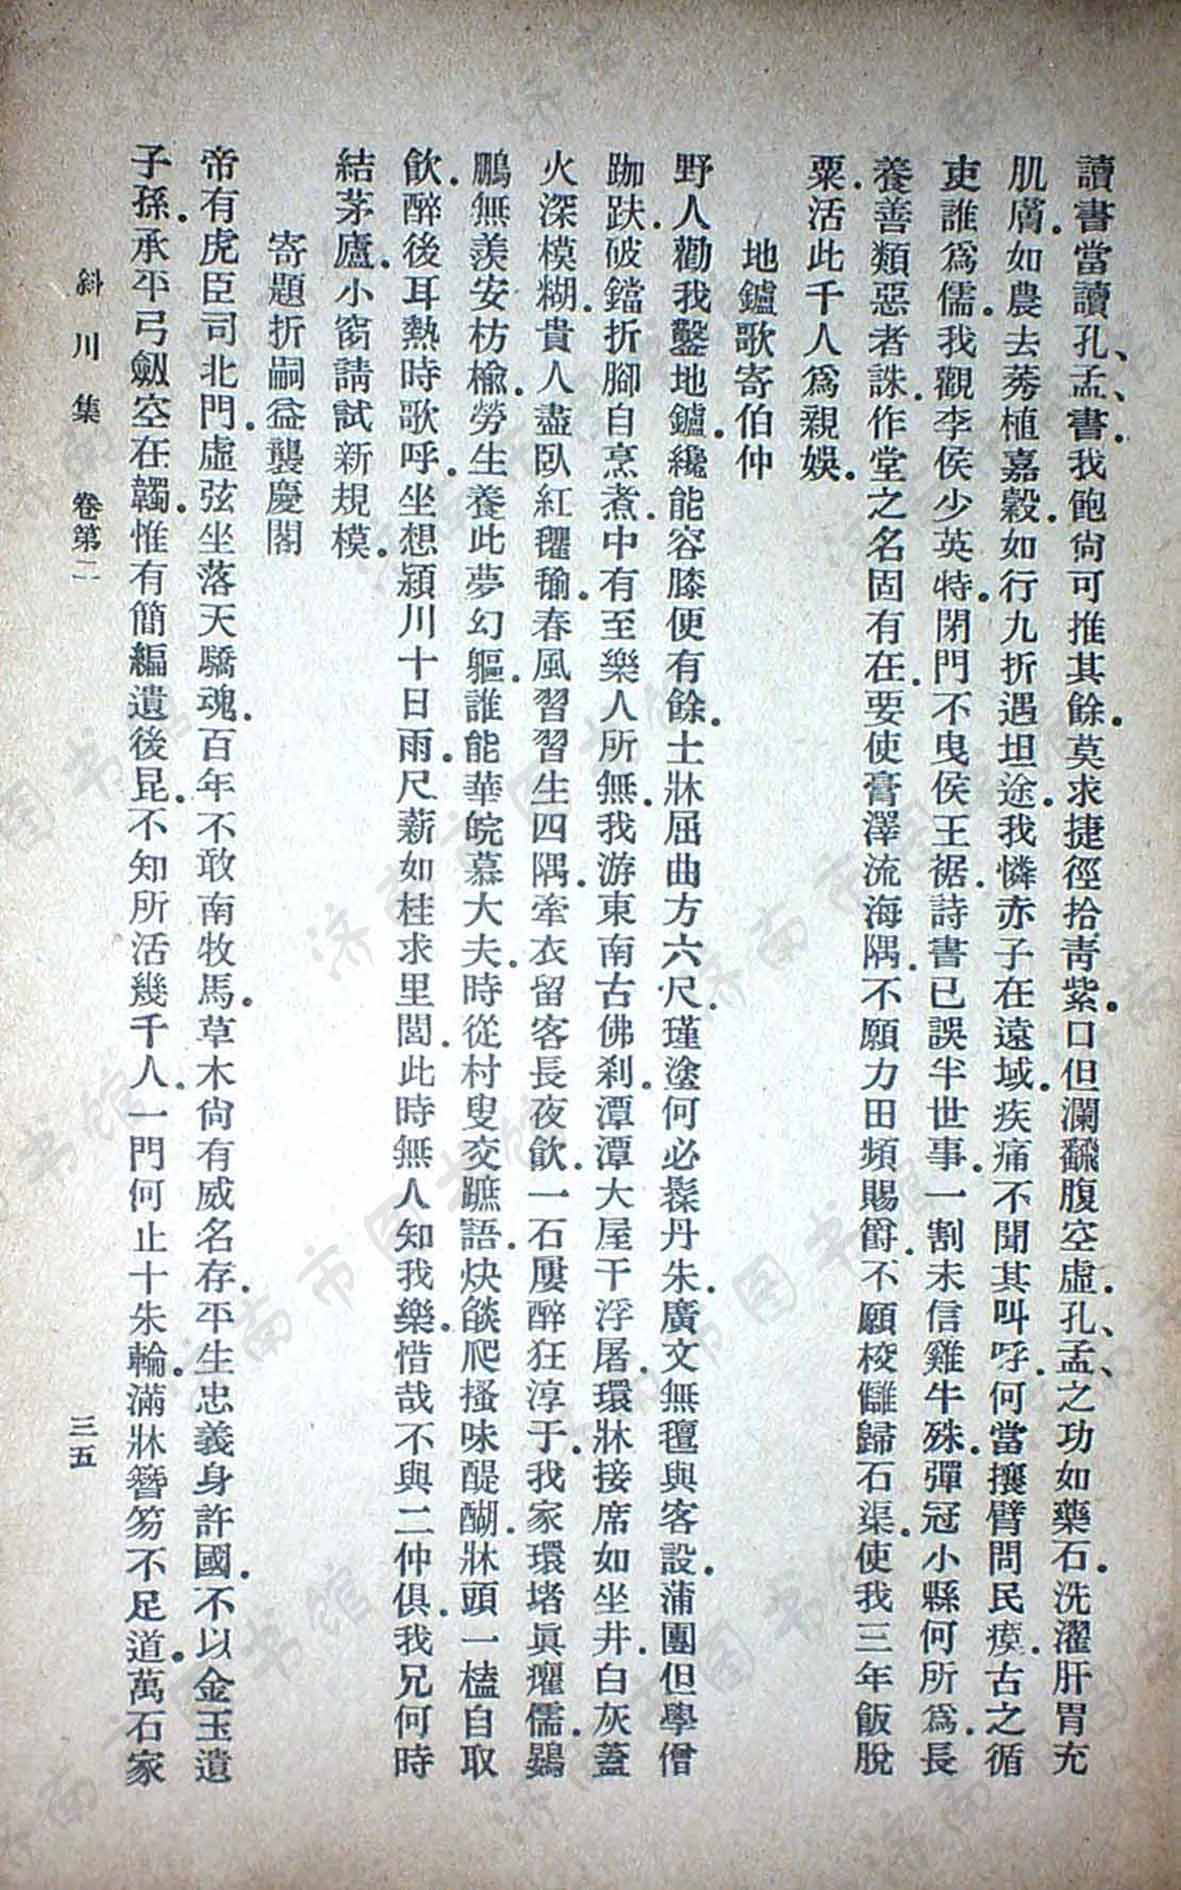 讀書當讀孔、孟、書。我飽尙可推其餘。莫求捷徑拾靑紫。口但瀾飜腹空虛。孔、孟、之功如藥石。洗濯肝胃充
肌膚。如農去莠植嘉穀。如行九折遇坦途。我憐赤子在遠域。疾痛不聞其叫呼。何當攘臂問民瘼。古之循
吏誰爲儒。我觀李侯少英特。閉門不曳侯王裾。詩書已誤半世事。一割未信雞牛殊。彈冠小縣何所爲。長
養善類惡者誅。作堂之名固有在。要使膏澤流海隅。不願力田頻賜爵。不願校讎歸石渠。使我三年飯脫
粟。活此千人爲親娛。
地鑪歌寄伯仲
野人勸我鑿地鑪。纔能容膝便有餘。土牀屈曲方六尺。瑾塗何必髹丹朱。廣文無氊與客設。蒲團但學僧
跏趺。破鐺折腳自烹煮。中有至樂人所無。我游東南古佛刹。潭潭大屋干浮屠。環牀接席如坐井。白灰蓋
火深模糊。貴人盡臥紅㲲毹。春風習習生四隅。牽衣留客長夜飮。一石屢醉狂淳于。我家環堵眞癯儒。鷃
鵬無羨安枋榆。勞生養此夢幻軀。誰能華皖慕大夫。時從村叟交蹠語。炔燄爬搔味醍醐。牀頭一榼自取
飮。醉後耳熱時歌呼。坐想潁川十日雨。尺薪如桂求里閭。此時無人知我樂。惜哉不與二仲俱。我兄何時
結茅廬。小窗請試新規模。
寄題折嗣益襲慶閣
帝有虎臣司北門。虛弦坐落天驕魂。百年不敢南牧馬。草木尙有威名存。平生忠義身許國。不以金玉遺
子孫。承平弓劔空在韣。惟有簡編遺後昆。不知所活幾千人。一門何止十朱輪。滿牀簪笏不足道。萬石家
斜川集 卷第二
三五